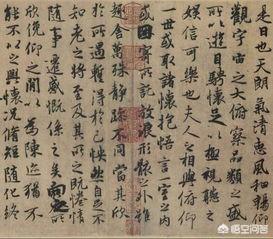 是日也天朗氣清惠風和暢仰
觀宇宙之大俯察品類之盛
所以遊目騁懷足以極視聽之
娛信可樂也夫人之相與俯仰
一世或取諸懷抱悟言一室之內
或因寄所託放浪形骸之外雖
趣舍萬殊靜躁不同當其欣
於所遇暫得於己怏然自足不
知老之將至及其所之既惓情
隨事遷感慨係之矣向之所
欣俛仰之閒以為陳迹猶不
能不以之興懷況脩短隨化終
悟空问答